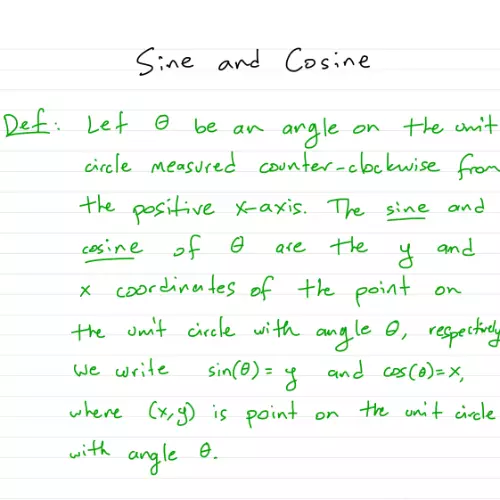 Sine and Cosine
Def: Let θ be an angle on the unit
circle measured counter-clockwise from
the positive x-axis. The sine and
cosine of θ are the y and
x coordinates of the point on
the unit circle with angle θ, respectively
We write sin(θ)=y and cos(θ)=x,
where (x,y) is point on the unit circle
with angle θ.